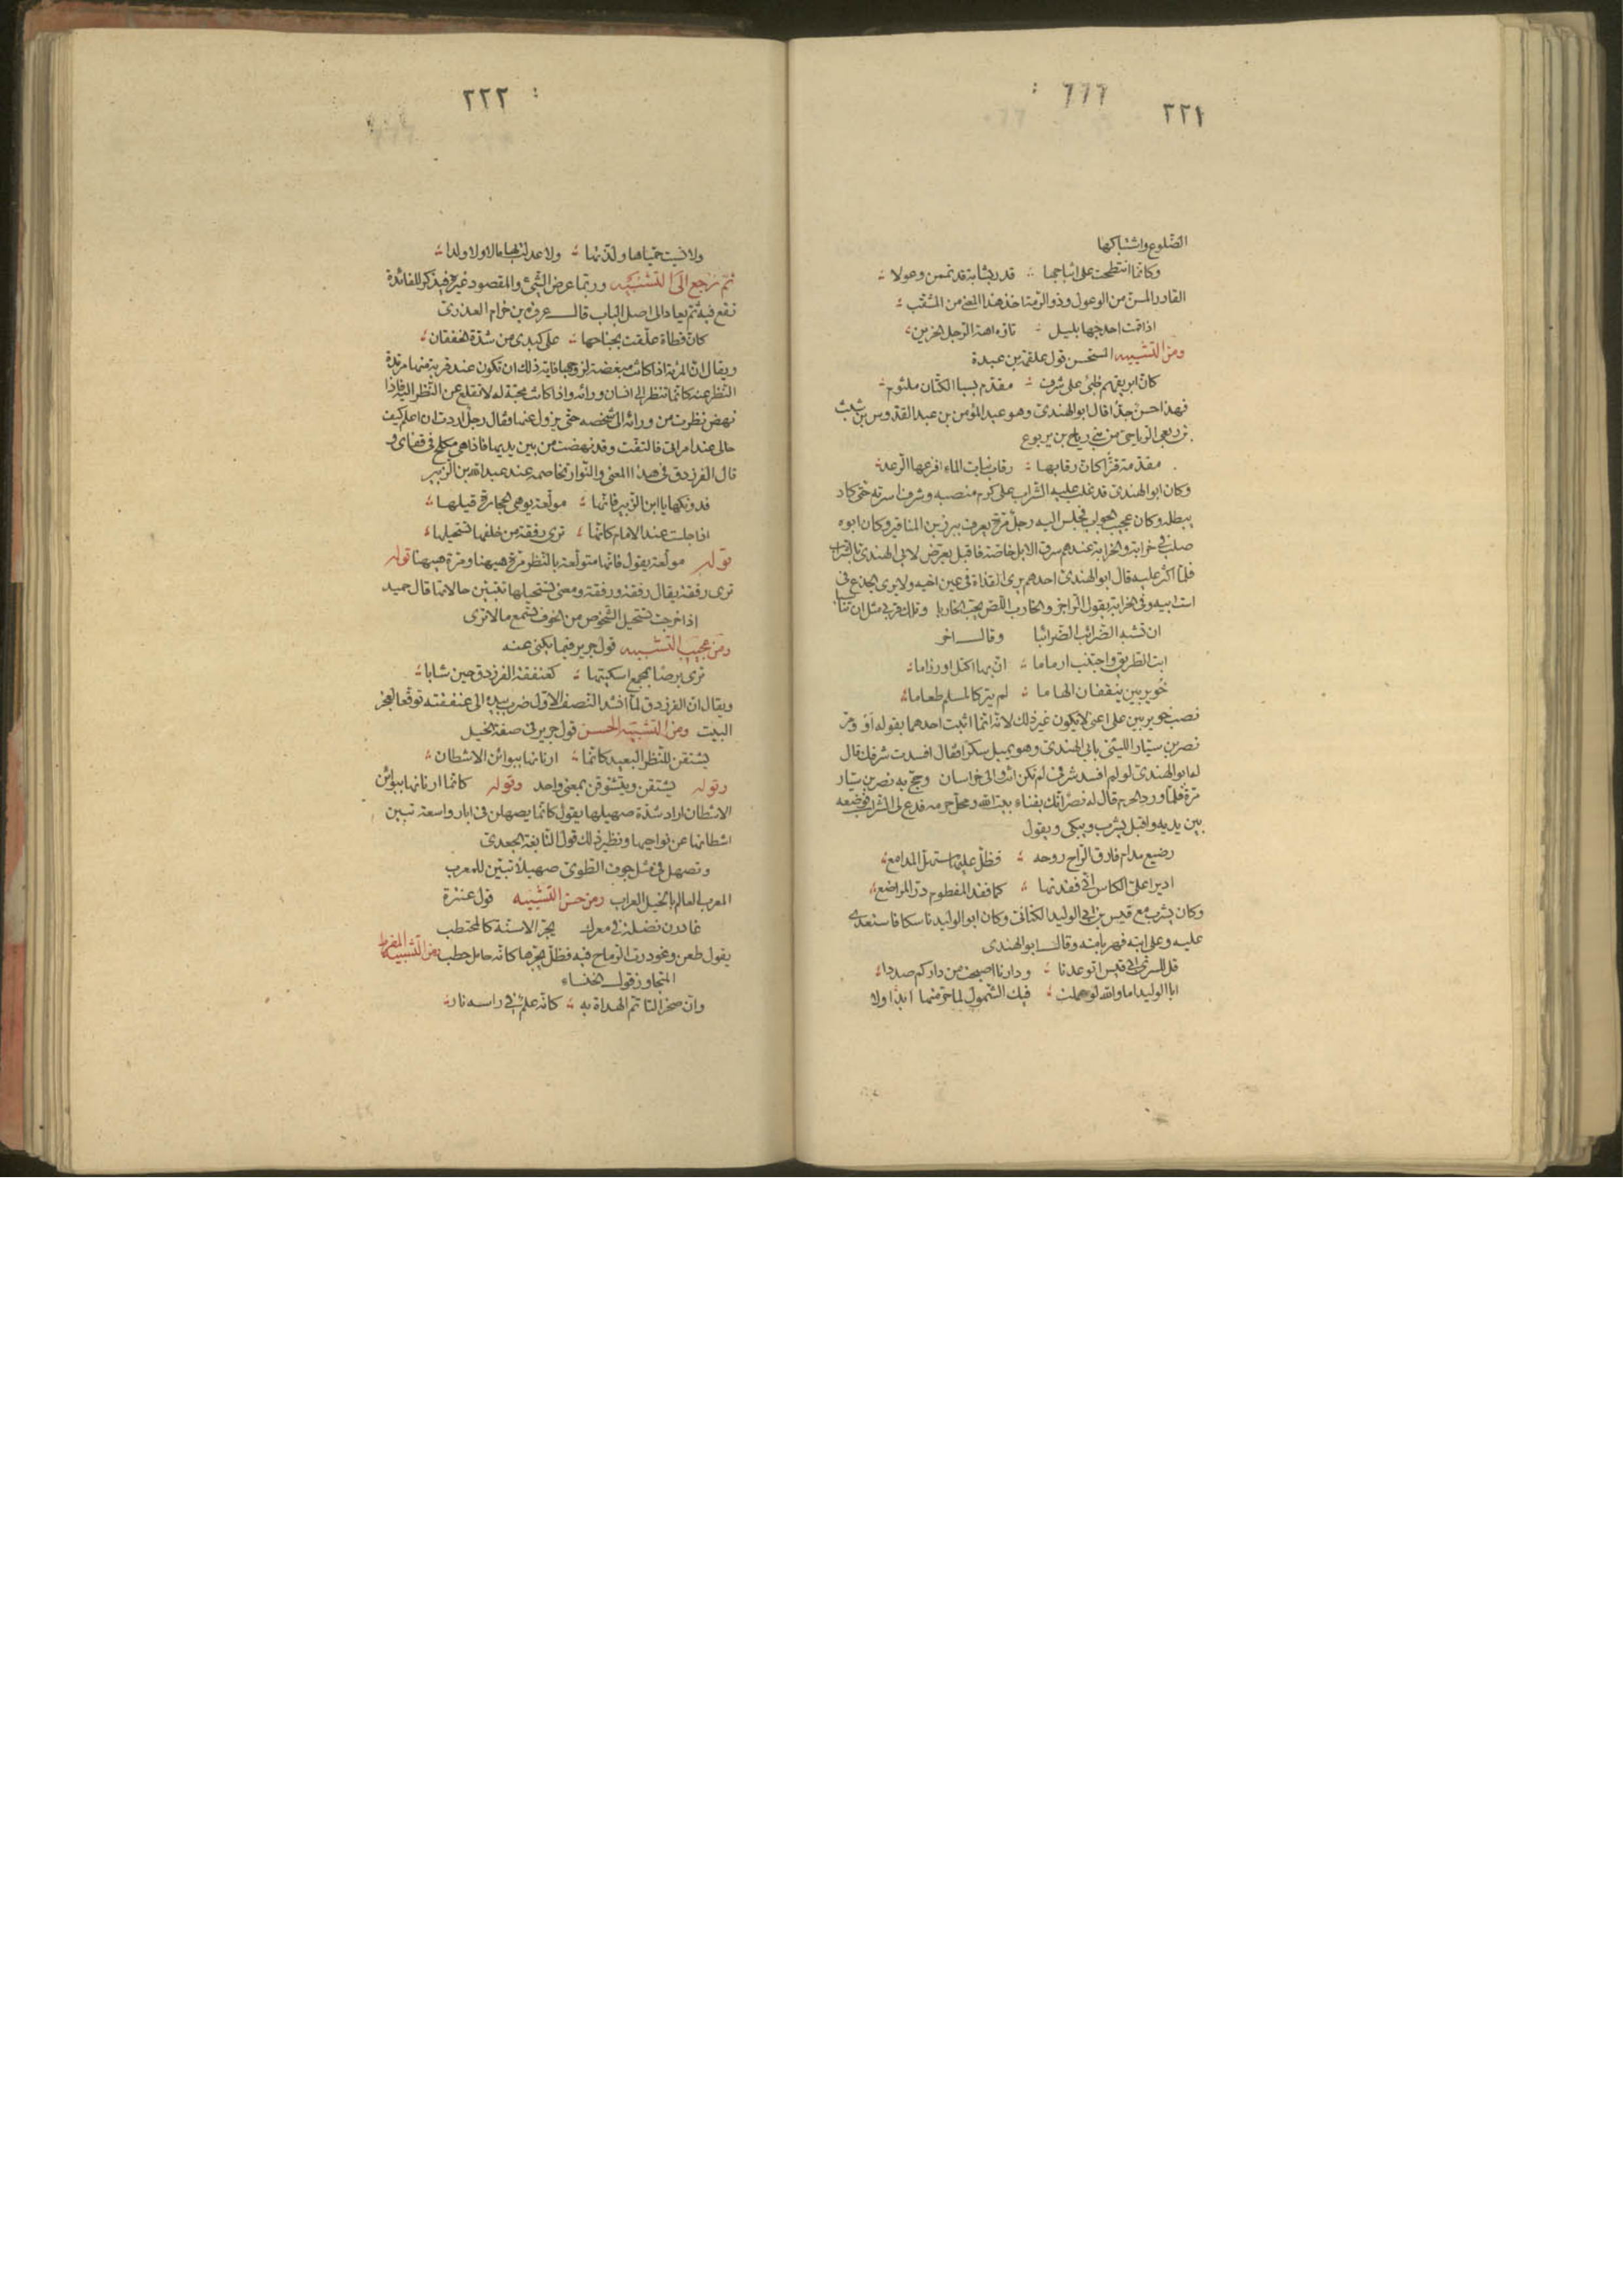 ٢٢١
الضّلوع واشتباكها
وكانّما انتطحت على اثباجها قدر بشابة قد تممن وعولا
القادر المسنّ من الوعول وذو الرّمة اخذ هذا المعنى من المثقّب
اذا قمت ارحلها بليل تاوّه اهة الرّجل الحزين
ومن التّشبيه المستحسن قول علقمة بن عبدة
كانّ ابريقهم ظبى على شرف مقدّم بسبا الكتّان ملثوم
فهذا احسن جدّا قال ابو الهندىّ وهو عبد المؤمن بن عبد القدّوس بن شبث
بن ربعى الرّياحىّ من بنى رياح بن يربوع
مقدّمة قزّا كانّ رقابها رقاب بنات الماء افزعها الرّعد
وكان ابو الهندىّ قد غلب عليه الشّراب على كرم منصبه وشرف اسرته حتّى كاد
يبطله وكان عجيب الجواب فجلس اليه رجل مرّة يعرف ببرزين المناقير وكان ابوه
صلب فى خرابة والخرابة عندهم سرق الابل خاصّة فاقبل يعرّض لابى الهندىّ بالشراب
فلمّا اكثر عليه قال ابو الهندىّ احدهم يرى القذاة فى عين اخيه ولا يرى الجذع فى
است ابيه وفى الخرابة يقول الرّاجز والخارب اللّصّ يحبّ الخاربا وتلك قربى مثل ان تناسبا
ان تشبه الضّرائب الضّرائبا وقال اخر
ايت الطّريق واجتنب ارماما انّ بها اكتل او رزاما
خُويربين ينقفان الهاما لم يتركا لمسلم طعاما
نصب خويربين على اعنى لا يكون غير ذلك لانّه انّما اثبت احدهما بقوله او ومرّ
نصر بن سيّار اللّيثىّ بابى الهندىّ وهو يميل سكرا فقال افسدت شرفك قال
له ابو الهندىّ لو لم افسد شرفى لم تكن انت والى خراسان وحجّ به نصر بن سيّار
مرّة فلمّا ورد الحرم قال له نصر انّك بفناء بيت اللّه ومحلّ حرمه فدع لى الشّراب فوضعه
بين يديه واقبل يشرب ويبكى ويقول
رضيع مدام فارق الرّاح روحه فظلّ عليها مستهلّ المدامع
اديرا علىّ الكاس انّى فقدتها كما فقد المفطوم درّ المراضع
وكان يشرب مع قيس بن ابى الوليد الكنانىّ وكان ابو الوليد ناسكا فاستعدى
عليه وعلى ابنه فهربا منه وقال ابو الهندى
قل للسّرىّ ابى قيس اتوعدنا ودارنا اصبحت من داركم صددا
ابا الوليد اما واللّه لو عملت فيك الشّمول لما حرّمتها ابدا ولا
٢٢٢
ولا نسيت حميّاها ولذّتها ولا عدلت بها مالا ولا ولدا
ثم نرجع الى التّشبيه وربّما عرض الشّىء والمقصود غيره فيذكر للفائدة
تقع فيه ثمّ يعاد الى اصل الباب قال عروة بن حزام العذرىّ
كانّ قطاة علّقت بجناحها على كبدى من شدّة الخفقان
ويقال انّ المرأة اذا كانت مبغضة لزوجها فاية ذلك ان تكون عند قربه منها مرتدّة
النّظر عنه كانّما تنظر الى انسان ورائه واذا كانت محبّة له لا تقلع عن النّظر اليه فاذا
نهض نظرت من ورائه الى شخصه حتّى يزول عنها فقال رجل اردت ان اعلم كيف
حالى عند امراتى فالتفتّ وقد نهضت من بين يديها فاذا هى تكلح فى قفاى و
قال الفرزدق فى هذا المعنى والنّوار تخاصمه عند عبد اللّه بن الزّبير
فدونكها يا ابن الزّبير فانّها مولّعة يوهى الحجارة قيلها
اذا جلست عند الامام كانّما ترى رفقة من خلفها تستحيلها
قوله مولّعة يقول فانّها متولّعة بالنّظر مرّة ههنا ومرّة ههنا قوله
ترى رفقة يقال رفقة ورفقة ومعنى تستحيلها تتبيّن حالاتها قال حميد
اذا خرجت تستحيل الشّخوص من الخوف تسمع ما لا ترى
ومن عجيب التّشبيه قول جرير فيما يكنى عنه
ترى برصا بمجمع اسكتيها كعنفقة الفرزدق حين شابا
ويقال ان الفرزدق لمّا انشد النّصف الاوّل ضرب بيده الى عنفقته توقّعا لعجز
البيت ومن التّشبيه الحسن قول جرير فى صفة الخيل
يشتفن للنّظر البعيد كانّما ارنانها ببوائن الاشطان
وقوله يشتفن ويتشوّفن بمعنى واحد وقوله كانّما ارنانها ببوائن
الاشطان اراد شدّة صهيلها يقول كانّما يصهلن فى ابار واسعة تبين
اشطانها عن نواحيها ونظير ذلك قول النّابغة الجعدىّ
وتصهل فى مثل جوف الطّوىّ صهيلا تبيّن للمعرب
المعرب العالم بالخيل العراب ومن حسن التّشبيه قول عنترة
غادرن نضلة فى معرك يجرّ الاسنّة كالمحتطب
يقول طعن وغودرت الرّماح فيه فظلّ يجرّها كانّه حامل حطب ومن التّشبيه المفرط
المتجاوز قول الخنساء
وانّ صخرا لتاتمّ الهداة به كانّه علم فى راسه نار